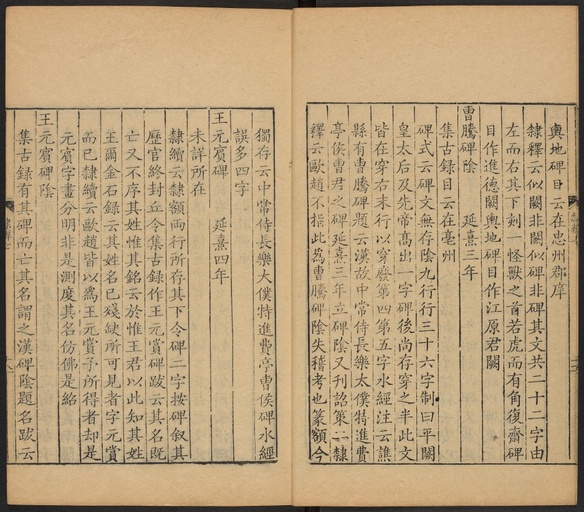 輿地碑目云在忠州郡庠
隸釋云似闕非闕似碑非碑其文共二十二字由
左而右其下刻一怪獸之首若虎而有角復齋碑
目作進德闕輿地碑目作江原君闕
曹騰碑陰 延熹三年
集古錄目云在亳州
碑式云碑文無存陰九行行三十六字制曰平闕
皇太后及先帝高出一字碑後尚存穿之半此文
皆在穿右末行以穿廢第四第五字水經注云譙
縣有曹騰碑題云漢故中常侍長樂太僕特進費
亭侯曹君之碑延熹三年立碑陰又刊詔策二隸
釋云歐趙不指此為曹騰碑陰失稽考也篆額今
獨存云中常侍長樂大僕特進費亭曹侯碑水經
誤多四字
王元賓碑 延熹四年
未詳所在
隸續云隸額兩行所存其下令碑二字按碑叙其
歷官終封丘令集古錄作王元賞碑跋云其名既
亡又不序其姓惟其銘云於惟王君以此知其姓
王爾金石錄云其姓名已殘缺所可見者字元賞
而已隸續云歐趙皆以為王元賞予所得者却是
元賓字畫分明非是測度其名仿佛是紹
王元賓碑陰
集古錄有其碑而亡其名謂之漢碑陰題名跋云